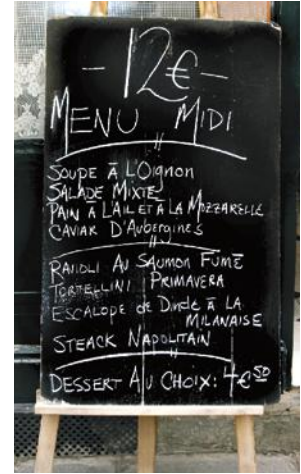 -12€-
MENU MIDI
SOUPE À L'OIGNON
SALADE MIXTE
PAIN À L'AIL ET À LA MOZZARELLE
CAVIAR D'AUBERGINES
RAIIOLI AU SAUMON FUMÉ
TORTELLINI PRIMAVERA
ESCALOPE de Dinde À LA
MILANAISE
STEACK NAPOLITAIN
DESSERT AU CHOIX: 4€50